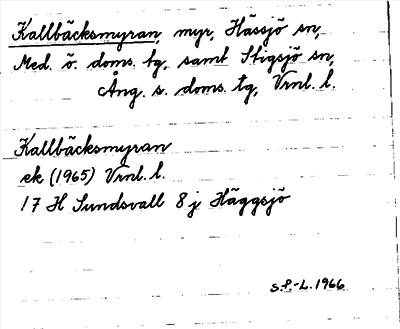 Kallbäcksmyran myr, Hässjö sn,
Med. ö. doms. tg, samt Stigsjö sn,
Ång. s. doms. tg, Vrnl. l.
Kallbäcksmyran
ek (1965) Vrnl. l.
17 H Sundsvall 8 j Häggsjö
S.P.-L. 1966